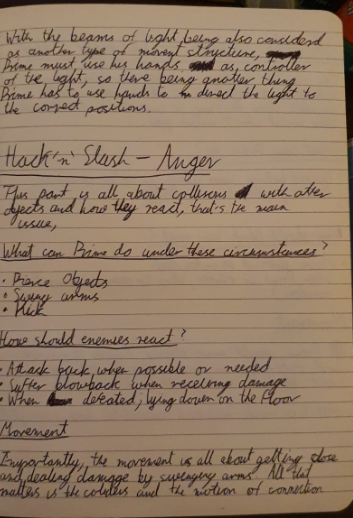 With the beams of light being also considerd
as another type of movent structure,
Prime must use his hands as, controller
of the light, so there being another thing
Prime has to use hands to direct the light to
the correct positions.
Hack'n'Slash - Anger
This part is all about collisions with other
objects and how they react, that's the main
issue,
What can Prime do under these circumstances?
• Pierce Objects
• Swing arms
• Kick
How should enemies react?
• Attack back, when possible or needed
• Suffer blowback when receiving damage
• When defeated, lying down on the floor
Movement
Importantly, the movement is all about getting close
and dealing damage by swinging arms. All that
matters is the colliders and the motion of connection